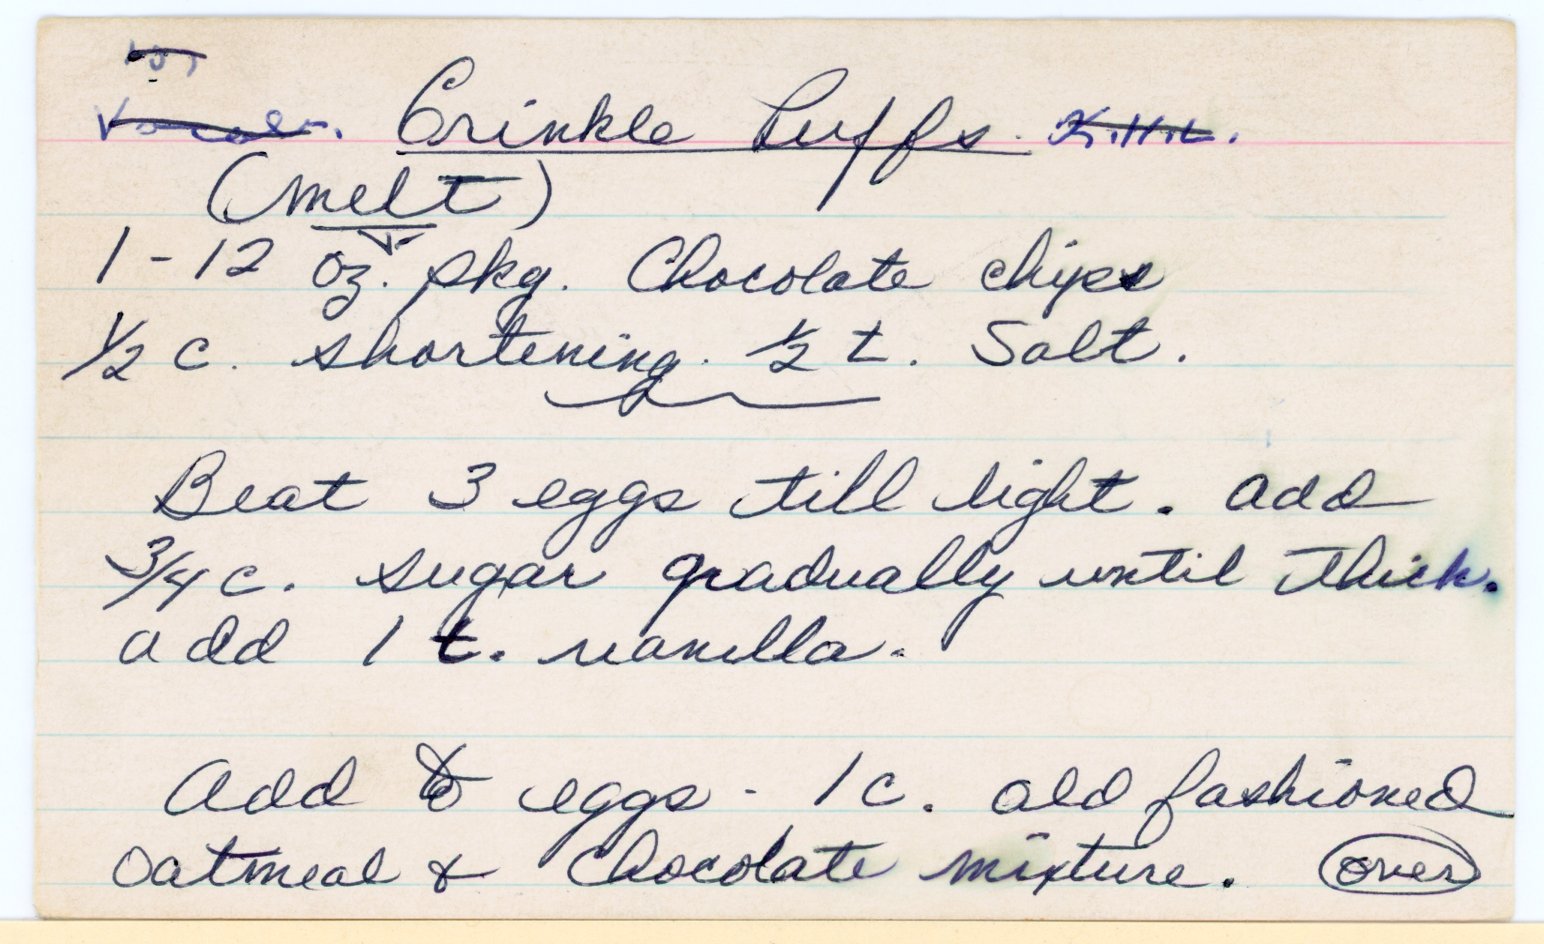 Crinkle Puffs.
(melt)
1 - 12 oz. pkg. Chocolate chips
1/2 c. shortening. 1/2 t. Salt.
Beat 3 eggs till light. add
3/4 c. sugar gradually until thick.
add 1 t. vanilla.
Add to eggs - 1 c. old fashioned
oatmeal & chocolate mixture. over